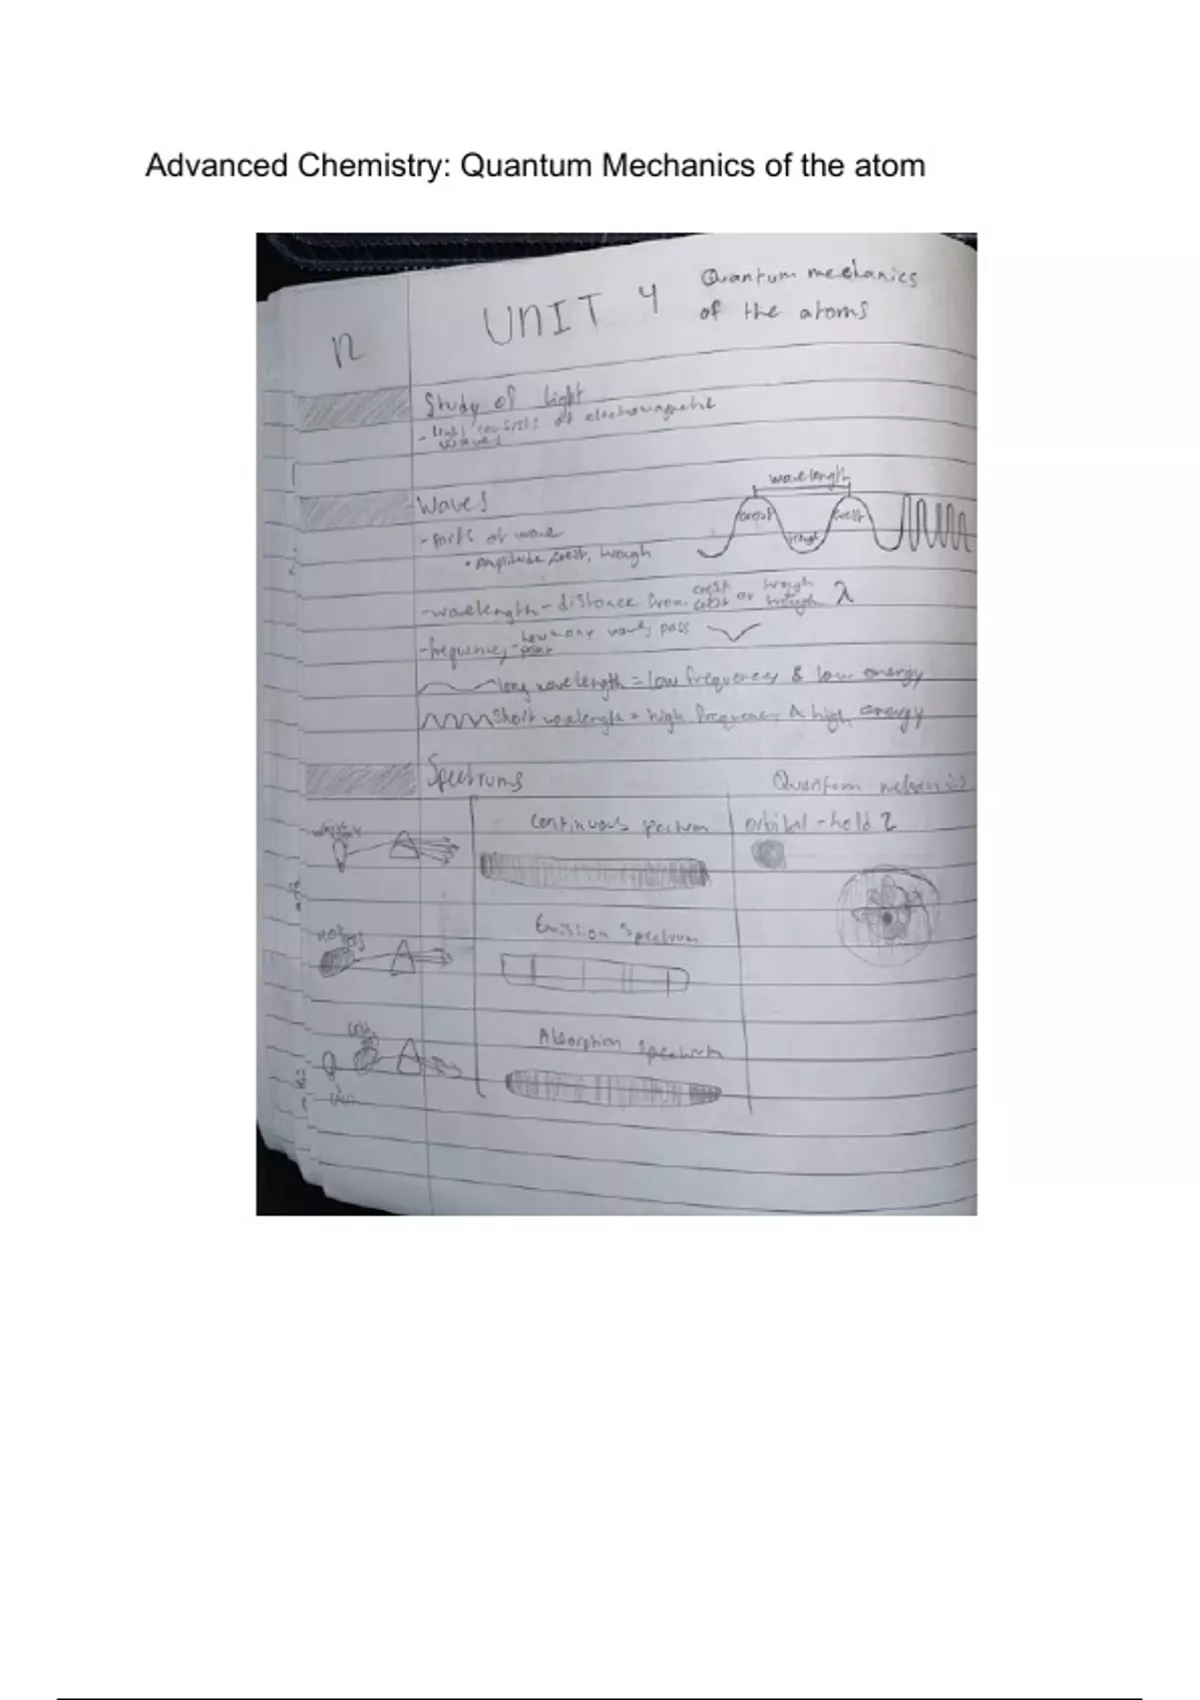 Advanced Chemistry: Quantum Mechanics of the atom
12
UNIT 4
Quantum mechanics
of the atoms
Study of Light
- light consists of electromagnetic
waves
Waves
wavelength
crest
crest
trough
- parts of wave
• Amplitude, crest, trough
- wavelength - distance from crest crest or trough trough λ
- frequency - how many waves pass
point
long wavelength = low frequency & low energy
short wavelength = high frequency & high energy
Spectrums
Quantum mechanics
Continuous spectrum
orbital - hold 2
Emission Spectrum
Absorption spectrum